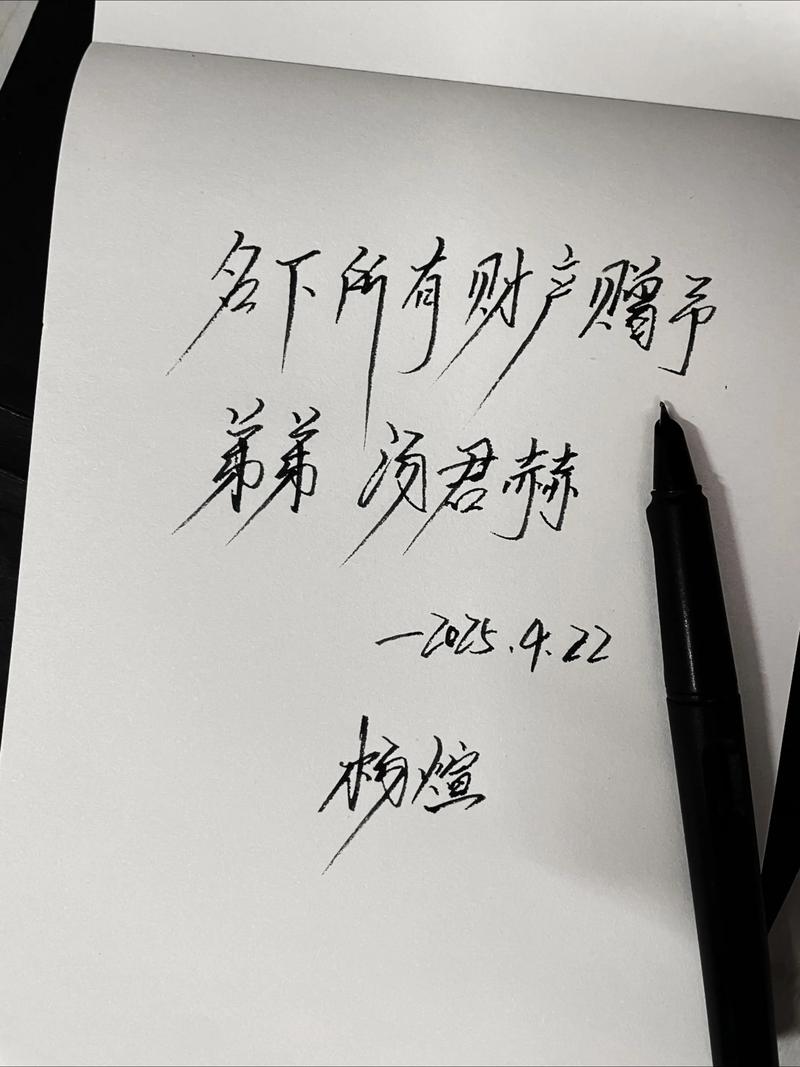 名下所有财产赠予
弟弟 汤君赫
—2025.4.22
杨煊